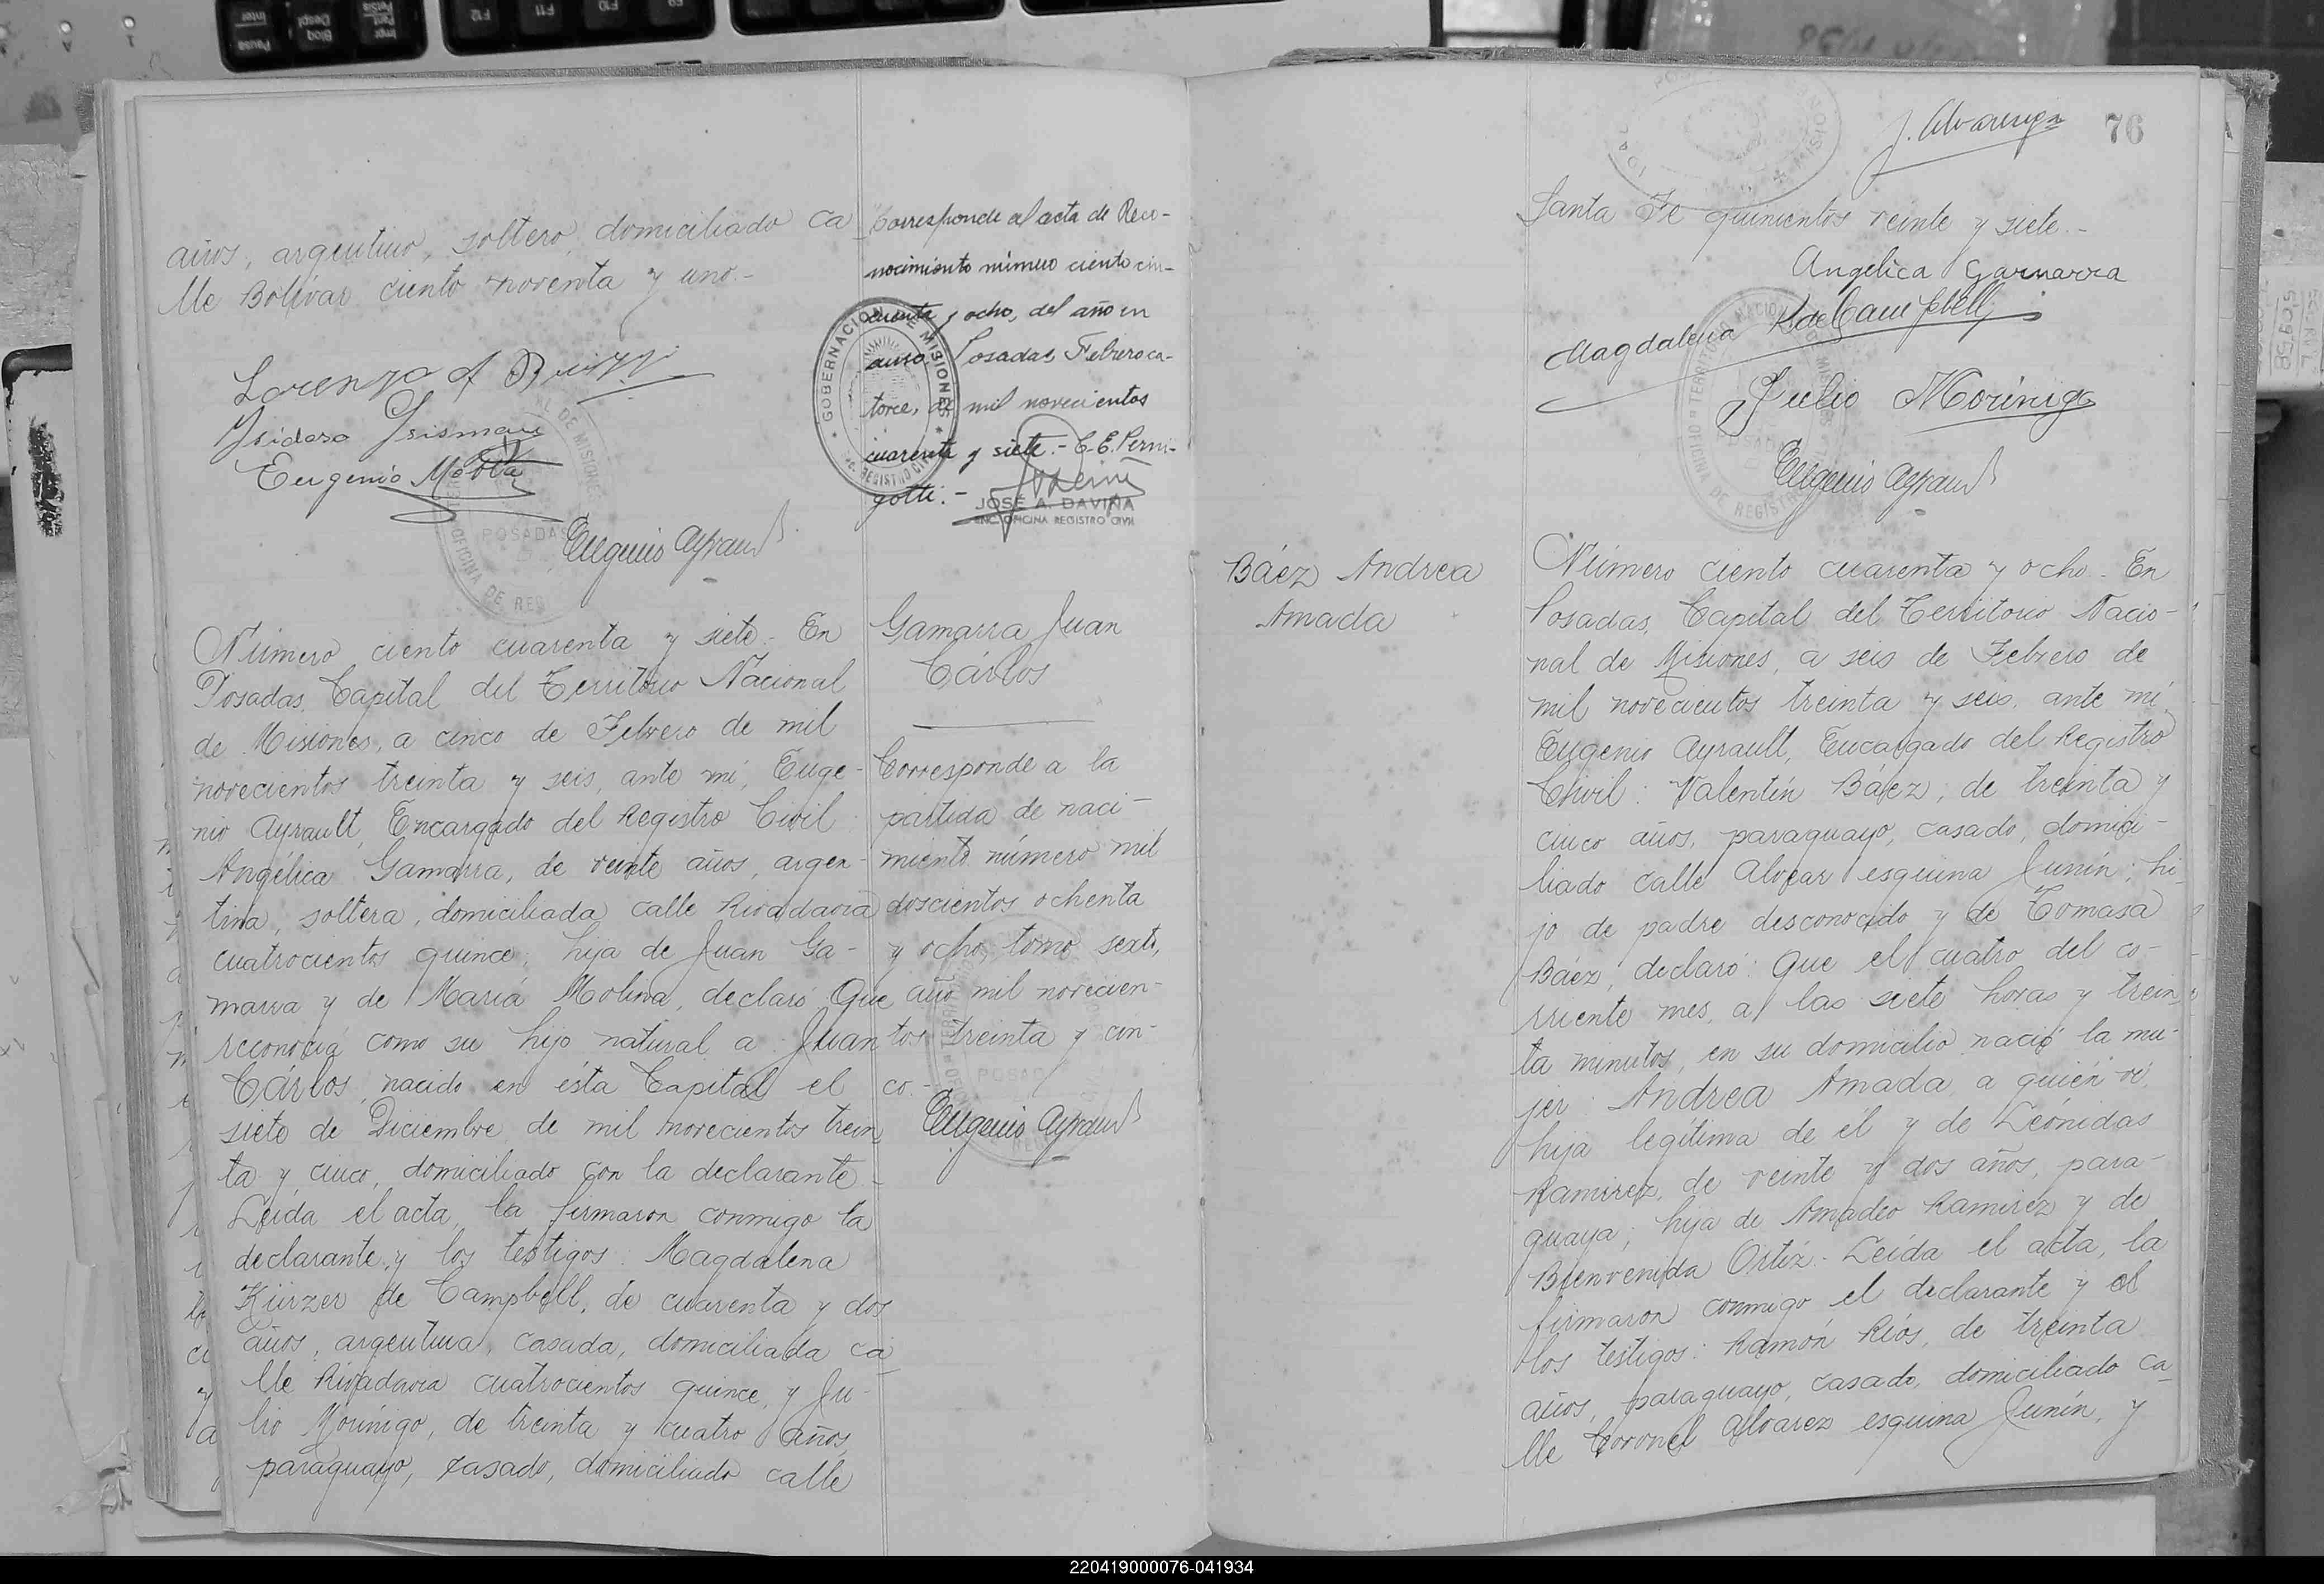 años, argentino, soltero, domiciliado ca-
lle Bolívar ciento noventa y uno.-
Eugenio Ayrault
Número ciento cuarenta y siete.- En
Posadas, Capital del Territorio Nacional
de Misiones, a cinco de Febrero de mil
novecientos treinta y seis, ante mí, Euge-
nio Ayrault, Encargado del Registro Civil:
Angélica Gamarra, de veinte años, argen-
tina, soltera, domiciliada calle Rivadavia
cuatrocientos quince; hija de Juan Ga-
marra y de María Molina, declaró: Que
reconocía como su hijo natural a: Juan
Cárlos, nacido en ésta Capital el
siete de Diciembre de mil novecientos trein
ta y cinco, domiciliado con la declarante.-
Leída el acta, la firmaron conmigo la
declarante y los testigos: Magdalena
Kürzer de Campbell, de cuarenta y dos
años, argentina, casada, domiciliada ca-
lle Rivadavia cuatrocientos quince, y Ju-
lio Morínigo, de treinta y cuatro años,
paraguayo, casado, domiciliado calle
Corresponde al acta de Reco-
nocimiento número ciento cin-
cuenta y ocho, del año en
curso. Posadas, Febrero ca-
torce, de mil novecientos
cuarenta y siete.- C. E. Perni-
gotti.-
JOSÉ A. DAVIÑA
ENC. OFICINA REGISTRO CIVIL
GOBERNACION DE MISIONES
REGISTRO CIVIL
Gamarra Juan
Cárlos
Corresponde a la
partida de naci-
miento número mil
doscientos ochenta
y ocho, tomo sexto,
año mil novecien-
tos treinta y cin-
co.-
Eugenio Ayrault
76
Santa Fe quinientos veinte y siete.-
Angélica Gamarra
Magdalena K de Campbell
Julio Morínigo
Eugenio Ayrault
Báez Andrea
Amada
Número ciento cuarenta y ocho.- En
Posadas, Capital del Territorio Nacio-
nal de Misiones, a seis de Febrero de
mil novecientos treinta y seis, ante mí,
Eugenio Ayrault, Encargado del Registro
Civil: Valentín Báez, de treinta y
cinco años, paraguayo, casado, domici-
liado calle Alvear esquina Junín; hi-
jo de padre desconocido y de Tomasa
Báez; declaró: Que el cuatro del co-
rriente mes, a las siete horas y trein
ta minutos, en su domicilio nació la mu-
jer: Andrea Amada, a quién ví,
hija legítima de él y de Leónidas
Ramirez, de veinte y dos años, para-
guaya; hija de Amadeo Ramirez y de
Bienvenida Ortíz.- Leída el acta, la
firmaron conmigo el declarante y el
los testigos: Ramón Ríos, de treinta
años, paraguayo, casado, domiciliado ca-
lle Coronel Alvarez esquina Junín, y
220419000076-041934